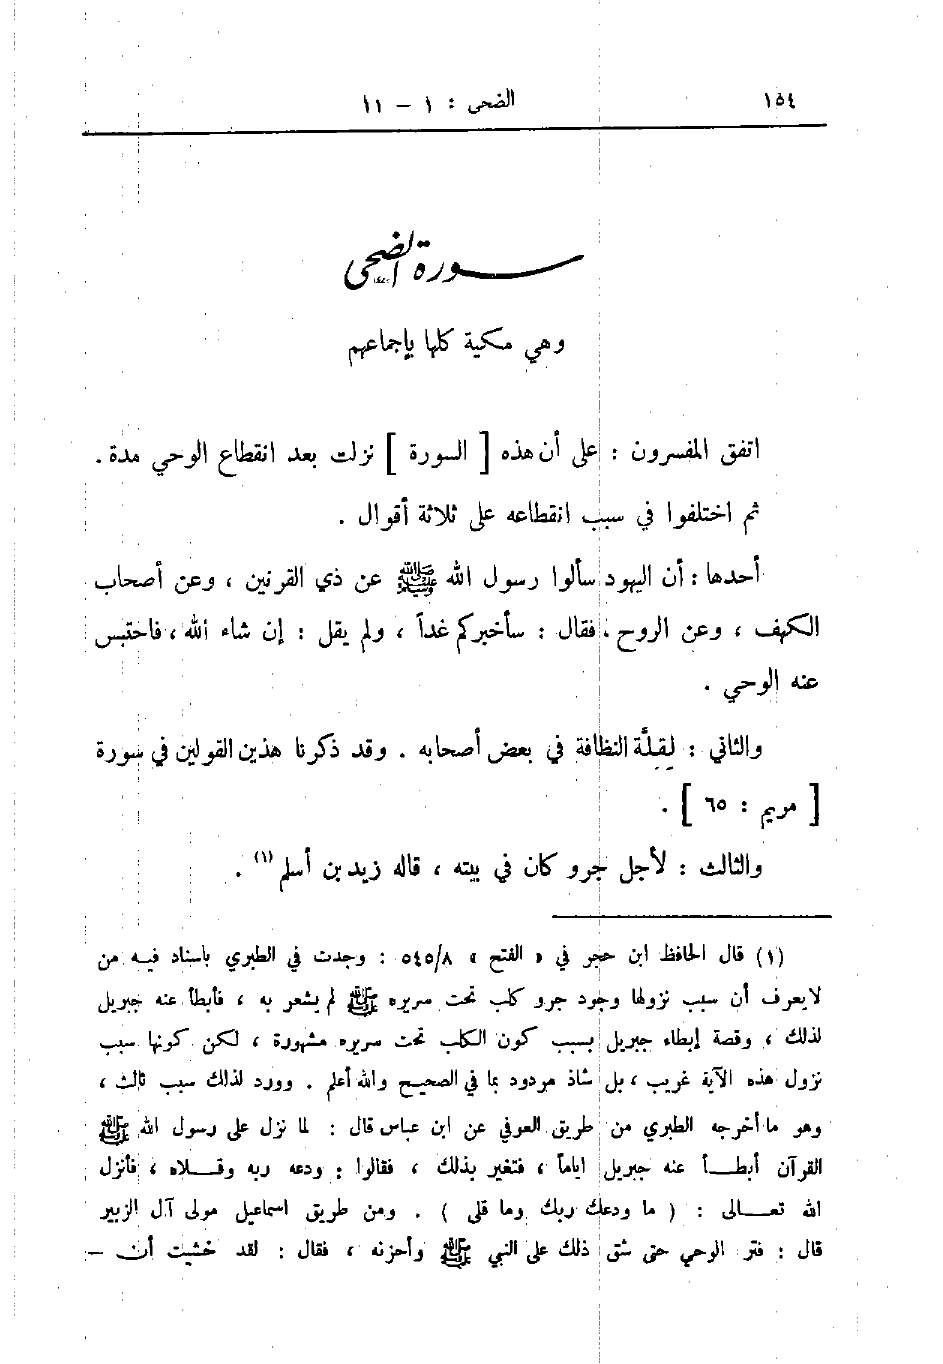 ١٥٤ الضحى : ١ - ١١
سورة الضحى
وهي مكية كلها بإجماعهم
اتفق المفسرون : على أن هذه [ السورة ] نزلت بعد انقطاع الوحي مدة .
ثم اختلفوا في سبب انقطاعه على ثلاثة أقوال .
أحدها : أن اليهود سألوا رسول الله ﷺ عن ذي القرنين ، وعن أصحاب
الكهف ، وعن الروح . فقال : سأخبركم غداً ، ولم يقل : إن شاء الله ، فاحتبس
عنه الوحي .
والثاني : لِقِلَّة النظافة في بعض أصحابه . وقد ذكرنا هذين القولين في سورة
[ مريم : ٦٥ ] .
والثالث : لأجل جرو كان في بيته ، قاله زيد بن أسلم (١) .
(١) قال الحافظ ابن حجر في « الفتح » ٥٤٥/٨ : وجدت في الطبري باسناد فيه من
لا يعرف أن سبب نزولها وجود جرو كلب تحت سريره ﷺ لم يشعر به ، فأبطأ عنه جبريل
لذلك ، وقصة إبطاء جبريل بسبب كون الكلب تحت سريره مشهورة ، لكن كونها سبب
نزول هذه الآية غريب ، بل شاذ مردود بما في الصحيح والله أعلم . وورد لذلك سبب ثالث ،
وهو ما أخرجه الطبري من طريق العوفي عن ابن عباس قال : لما نزل على رسول الله ﷺ
القرآن أبطأ عنه جبريل اياماً ، فتغير بذلك ، فقالوا : ودعه ربه وقلاه ، فأنزل
الله تعالى : ( ما ودعك ربك وما قلى ) . ومن طريق اسماعيل مولى آل الزبير
قال : فتر الوحي حتى شق ذلك على النبي ﷺ وأحزنه ، فقال : لقد خشيت أن –